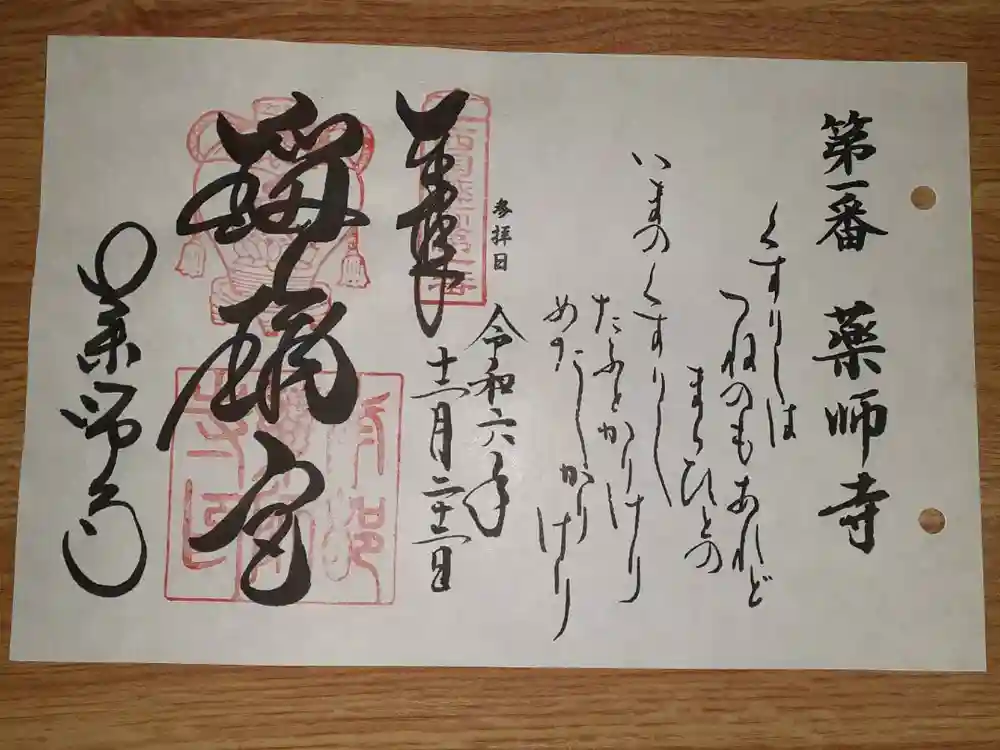 第一番 薬師寺
くすりしは
つねのもあれど
まらひとの
いまのくすりし
たふとかりけり
めだしかりけり
参拝日
令和六年
十二月二十二日
奉拝
西国薬師第一番
瑠璃宮
薬師寺